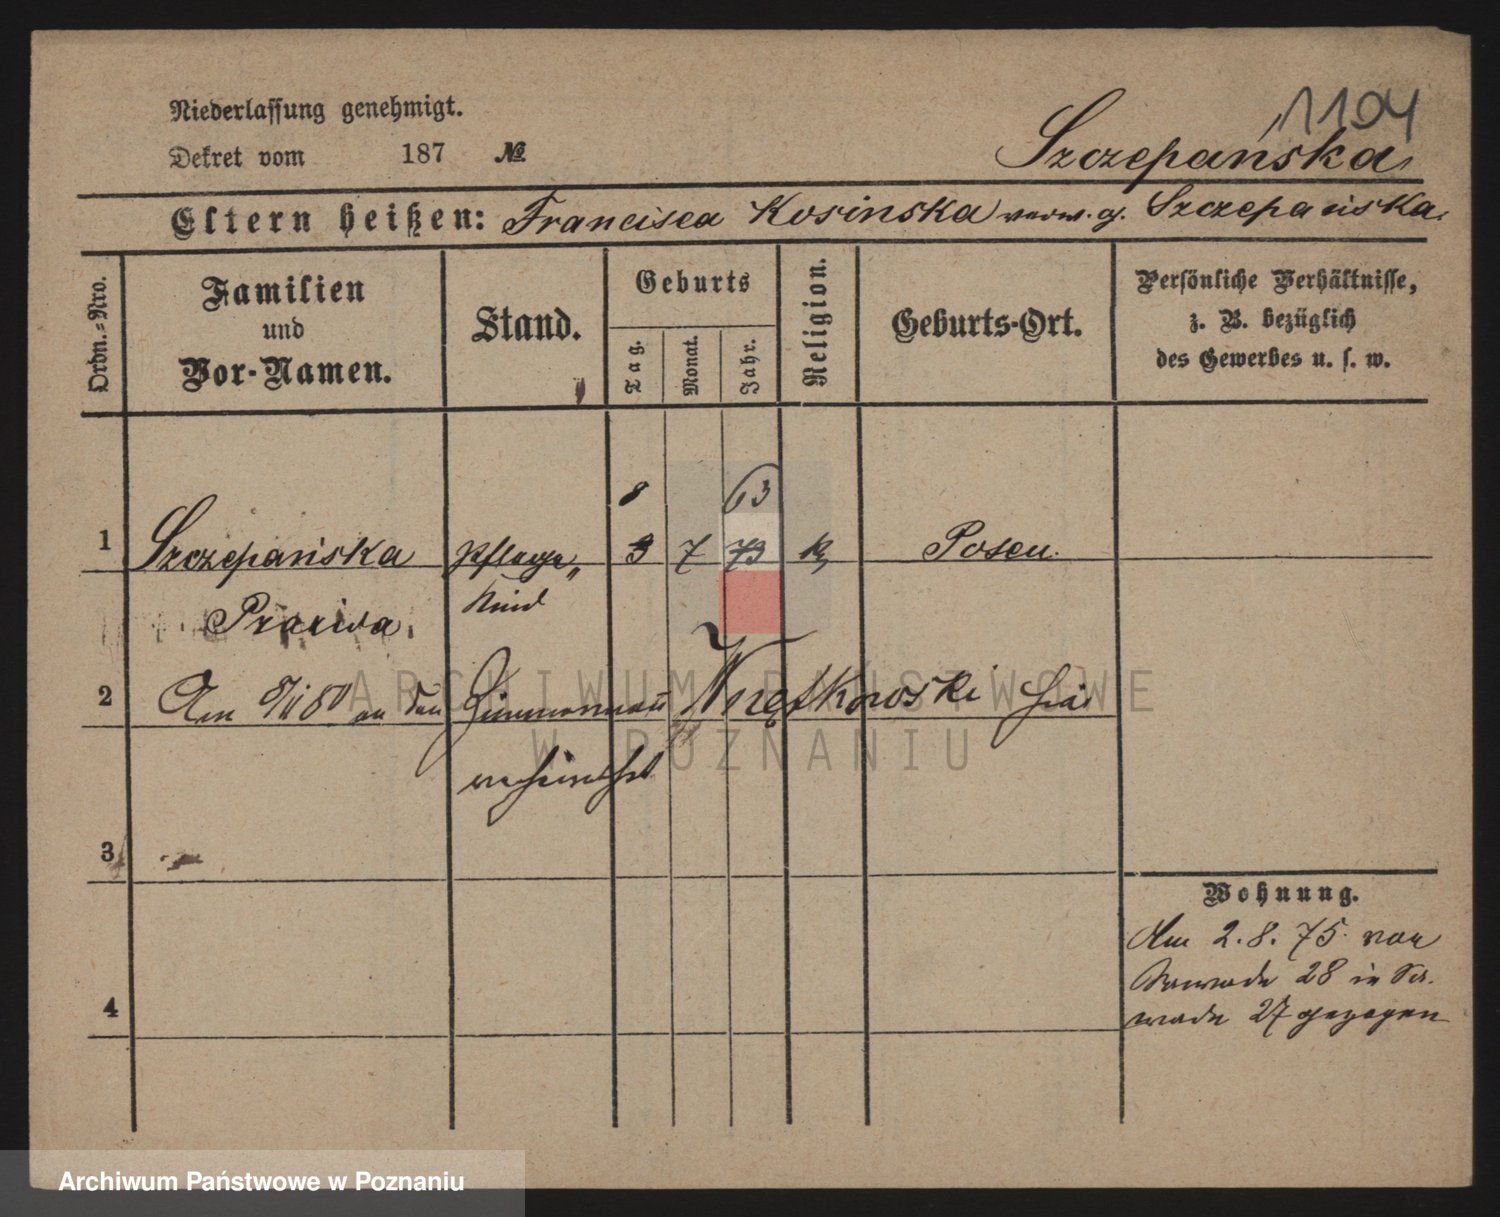 Niederlassung genehmigt.
Dekret vom 187 №
1104
Szczepańska
Eltern heißen: Francisca Kosinska verw. g. Szczepańska.
Ordn.=Nro.
Familien
und
Vor-Namen.
Stand.
Geburts
Tag.
Monat.
Jahr.
Religion.
Geburts-Ort.
Persönliche Verhältnisse,
z. B. bezüglich
des Gewerbes u. s. w.
8 63
1 Szczepańska Pflege„ 3 7 73 k, Posen.
Kind
2 Am 8/11 80 an den Zimmermann hier
verheirathet
3
Wohnung.
Am 2. 8. 75 von
28 in
27 gezogen
4
ARCHIWUM PAŃSTWOWE
W POZNANIU
Archiwum Państwowe w Poznaniu